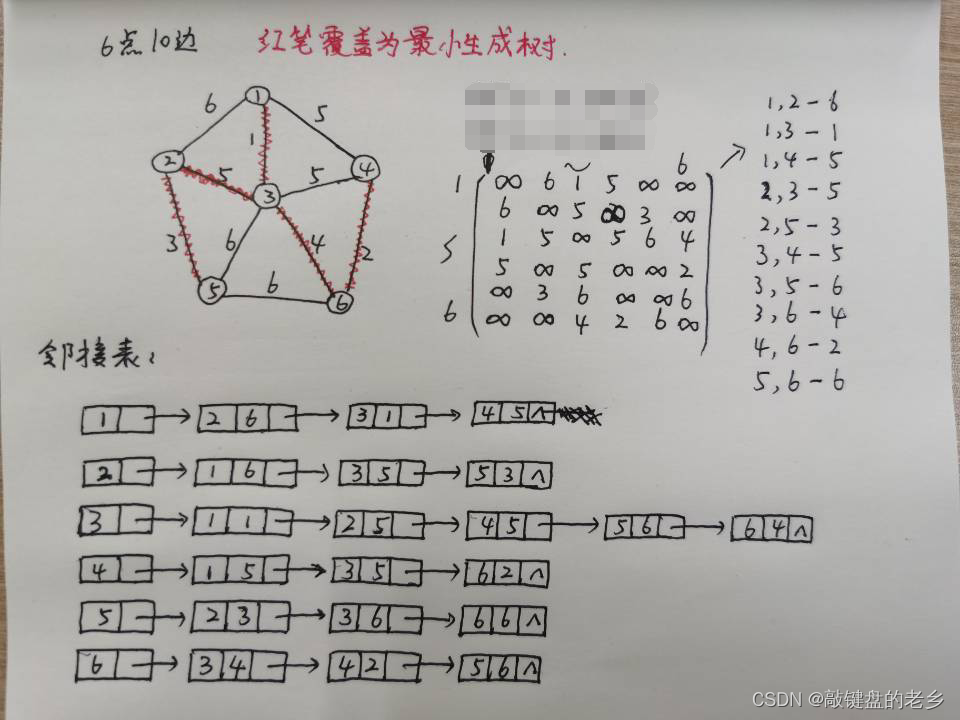 6点10边 红笔覆盖为最小生成树.
1
6 5
1
2 5 5 4
3
3 6 4 2
5 6 6
6
1 ∞ 6 1 5 ∞ ∞
6 ∞ 5 ∞ 3 ∞
5 1 5 ∞ 5 6 4
5 ∞ 5 ∞ ∞ 2
∞ 3 6 ∞ ∞ 6
6 ∞ ∞ 4 2 6 ∞
1,2-6
1,3-1
1,4-5
2,3-5
2,5-3
3,4-5
3,5-6
3,6-4
4,6-2
5,6-6
邻接表:
1 → 2 6 → 3 1 → 4 5 ∧
2 → 1 6 → 3 5 → 5 3 ∧
3 → 1 1 → 2 5 → 4 5 → 5 6 → 6 4 ∧
4 → 1 5 → 3 5 → 6 2 ∧
5 → 2 3 → 3 6 → 6 6 ∧
6 → 3 4 → 4 2 → 5 6 ∧
CSDN @敲键盘的老乡